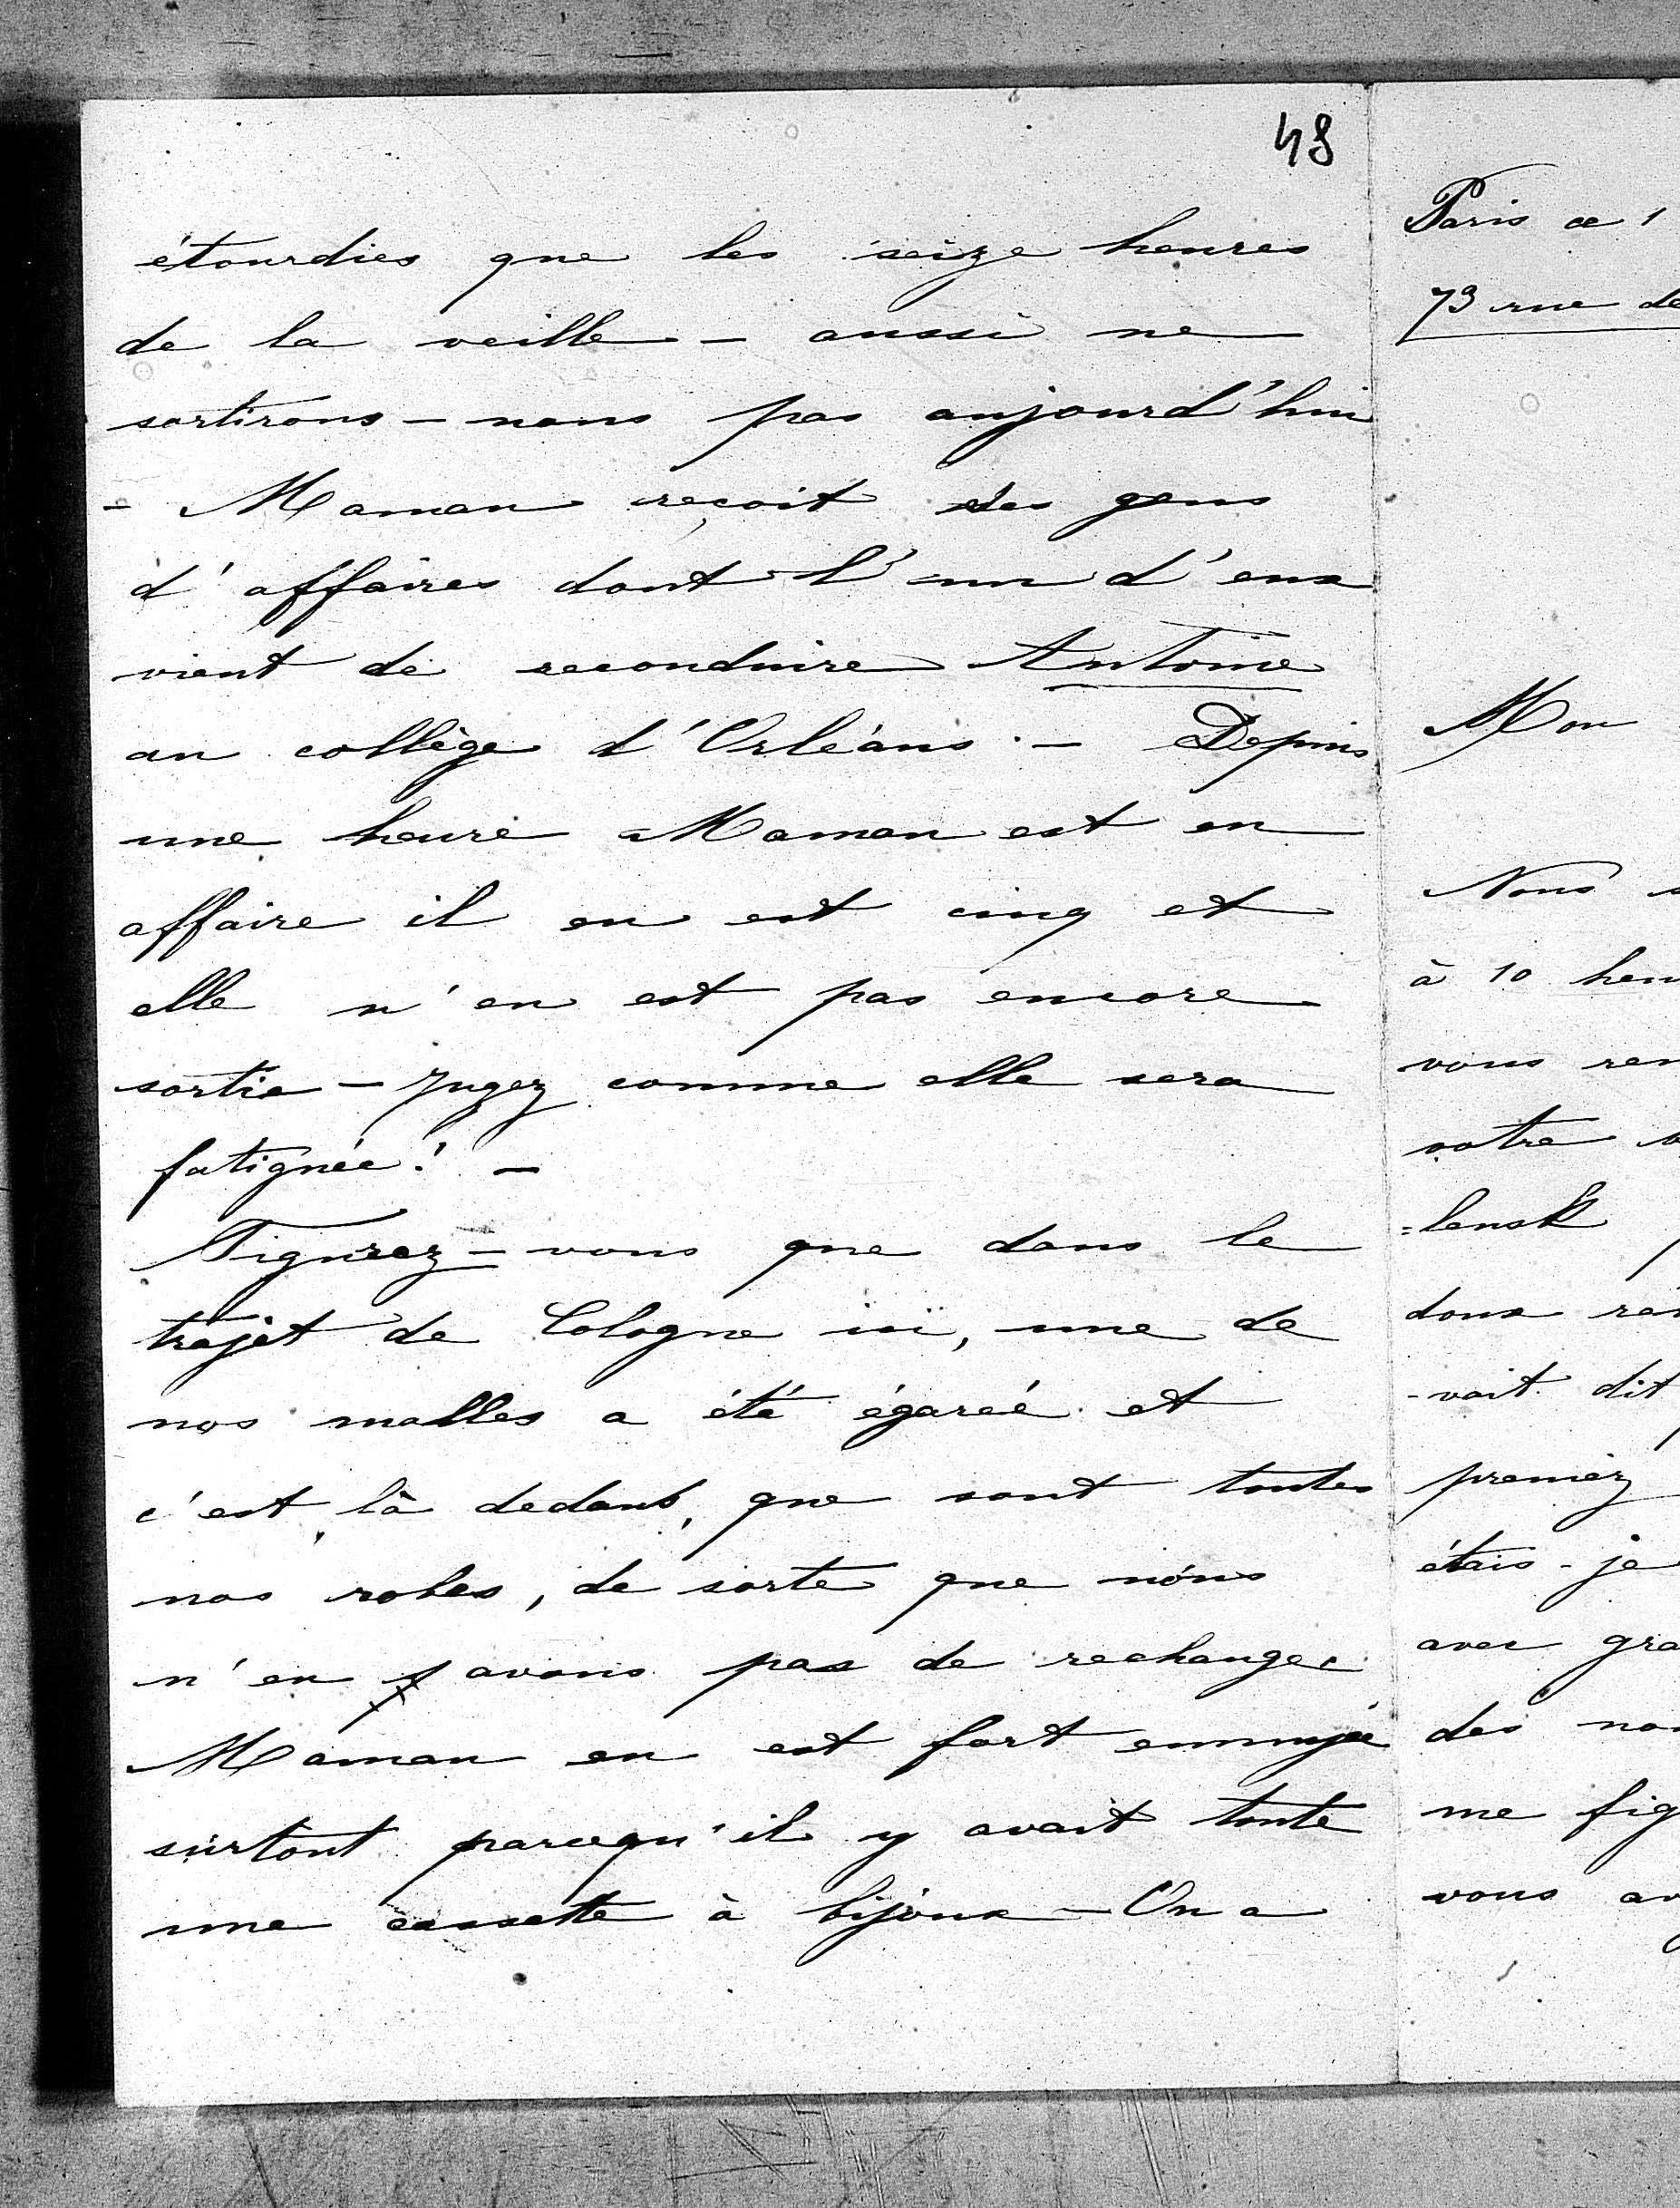 48
étourdies que les seize heures
de la veille - aussi ne
sortirons - nous pas aujourd'hui
- Maman reçoit des gens
d'affaires dont l'un d'eux
vient de reconduire Antoine
au collège d'Orléans. - Depuis
une heure Maman est en
affaire il en est cinq et
elle n'en est pas encore
sortie - Jugez comme elle sera
fatiguée! -
Figurez - vous que dans le
trajet de Cologne ici, une de
nos malles a été égarée et
c'est là dedans, que sont toutes
nos robes, de sorte que nous
n'en avons pas de rechange
Maman en est fort ennuyée
surtout parcequ'il y avait toute
une cassette à bijoux - On a
Paris ce 1
73 rue de
Mon
Nous
à 10 heu
vous ren
votre
=lensk
doux ren
-vait dit
premiez
étais - je
avec gra
des nou
me fig
vous av